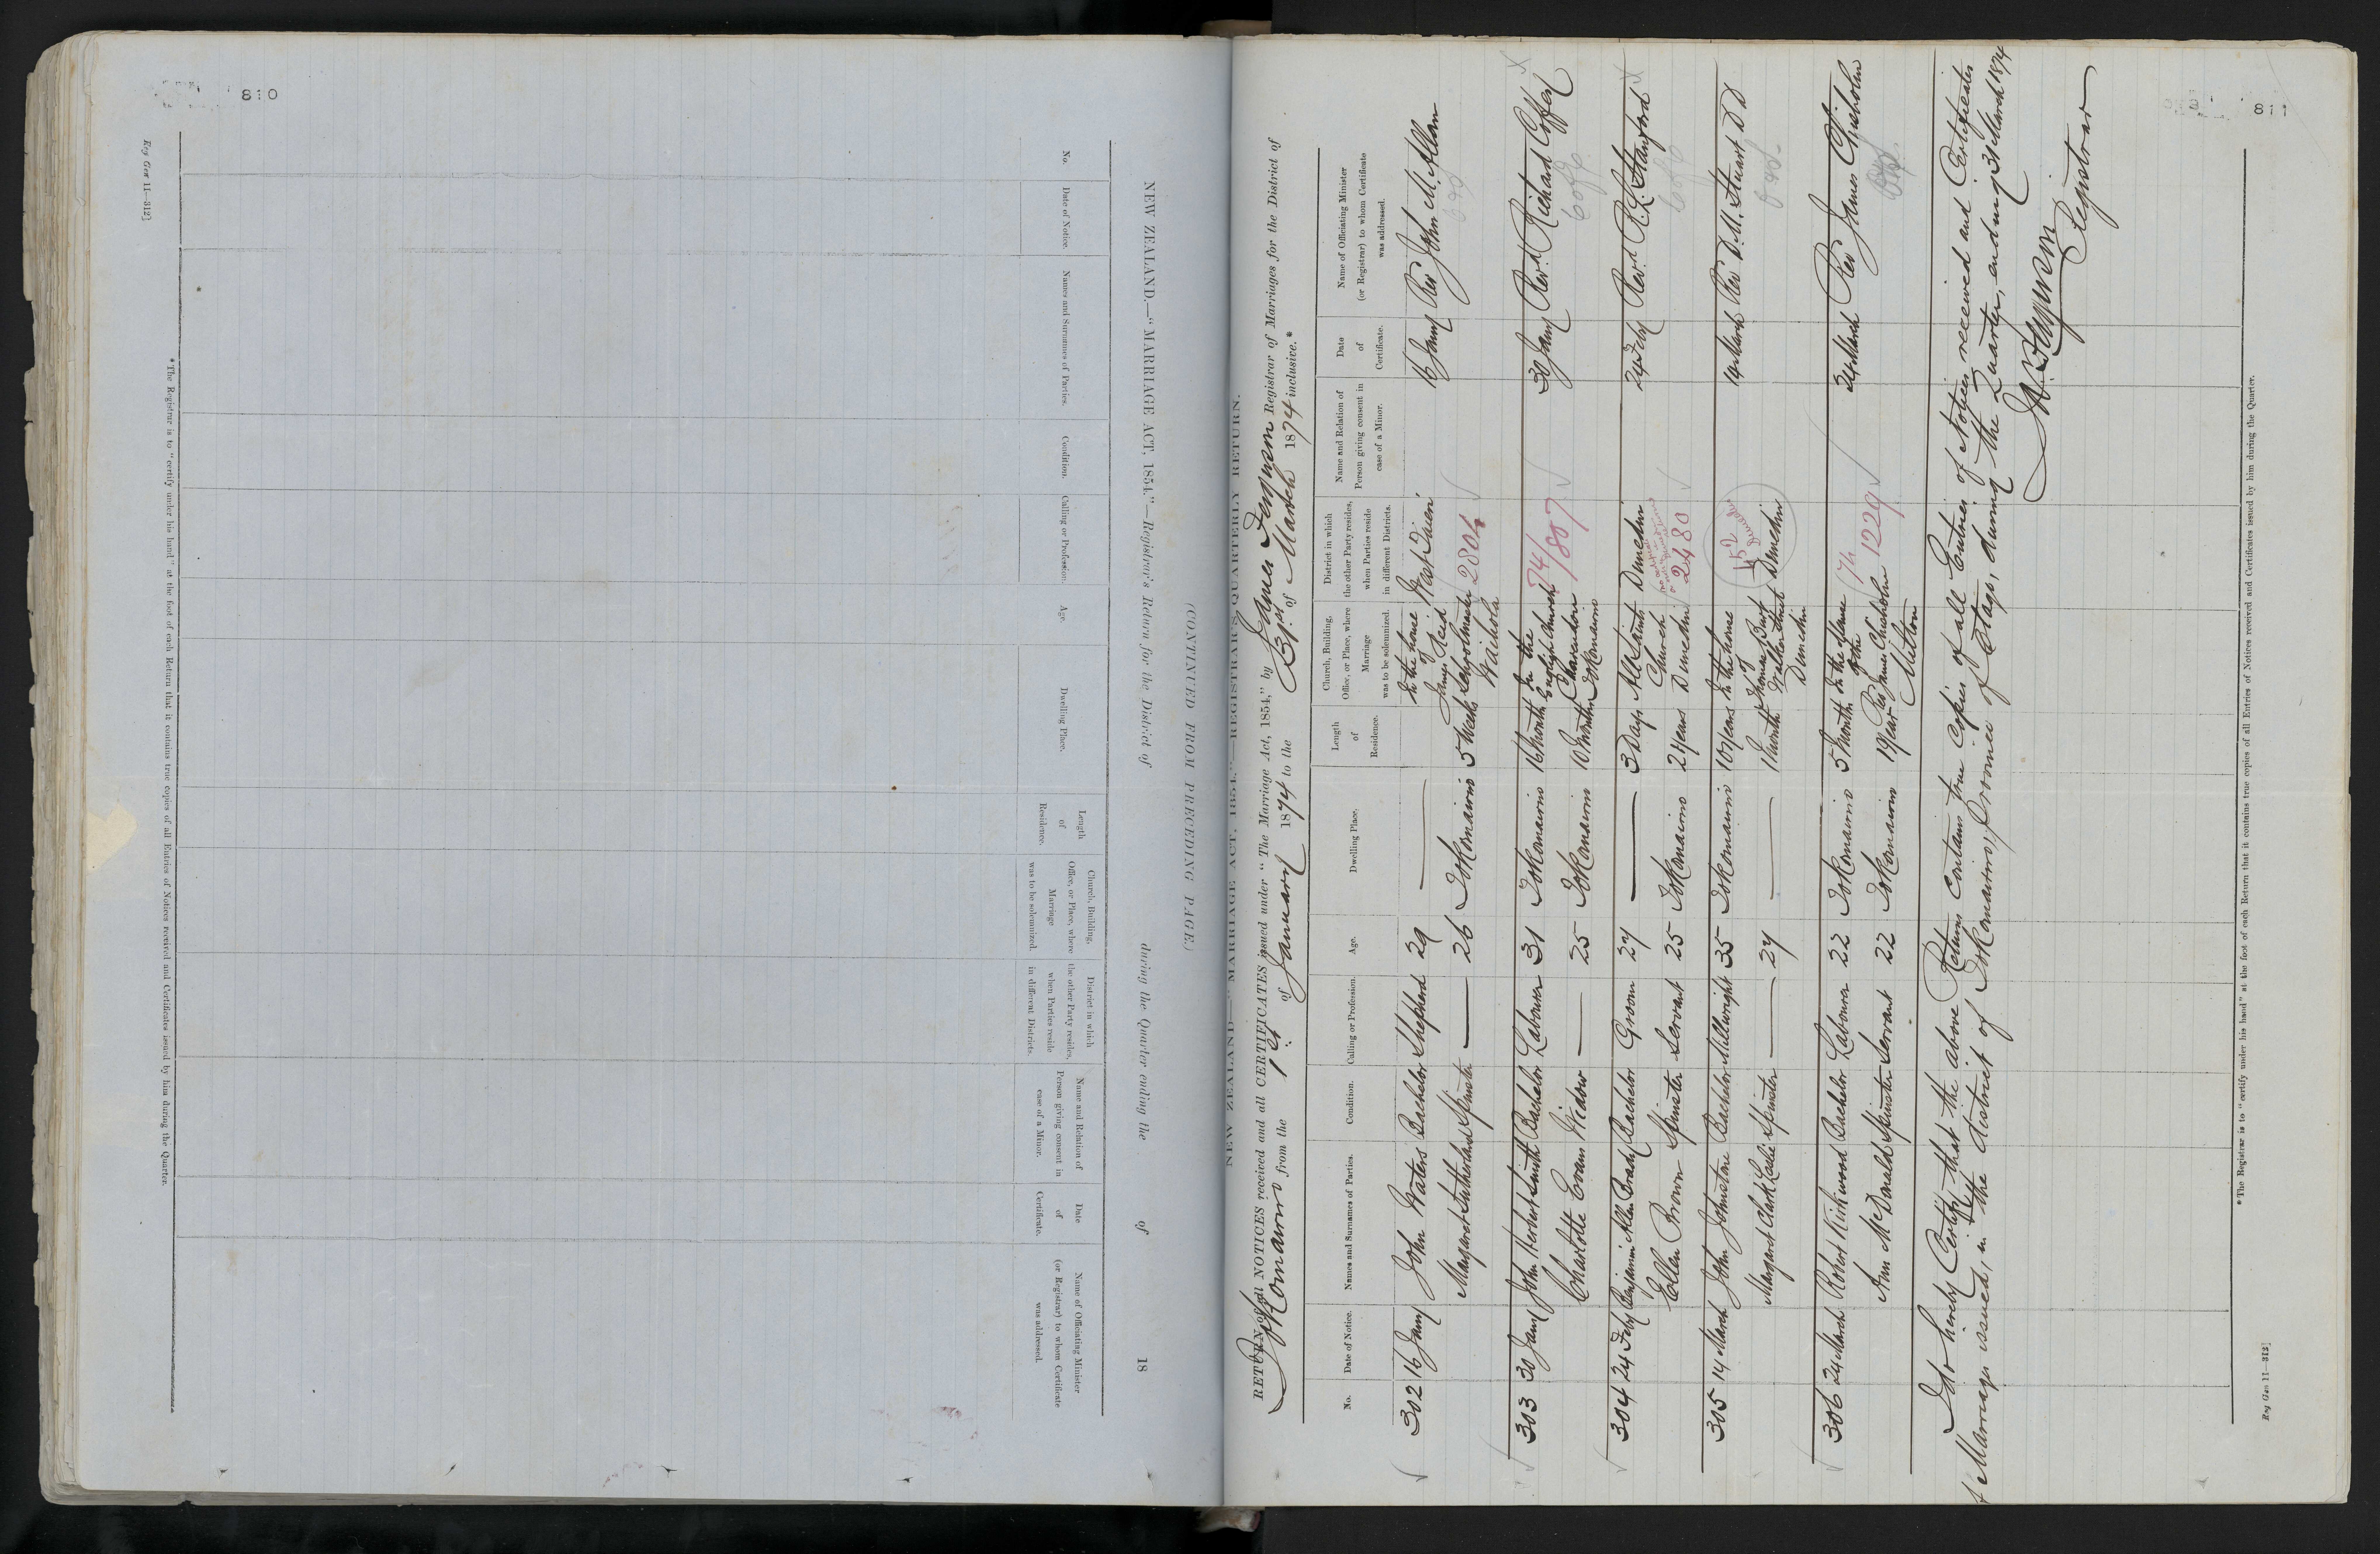 810
Reg Gen 11—312]
NEW ZEALAND.—"MARRIAGE ACT, 1854."—Registrar's Return for the District of during the Quarter ending the of 18
(CONTINUED FROM PRECEDING PAGE.)
No.
Date of Notice.
Names and Surnames of Parties.
Condition.
Calling or Profession.
Age.
Dwelling Place.
Length
of
Residence.
Church, Building,
Office, or Place, where
Marriage
was to be solemnized.
District in which
the other Party resides,
when Parties reside
in different Districts.
Name and Relation of
Person giving consent in
case of a Minor.
Date
of
Certificate.
Name of Officiating Minister
(or Registrar) to whom Certificate
was addressed.
*The Registrar is to "certify under his hand" at the foot of each Return that it contains true copies of all Entries of Notices received and Certificates issued by him during the Quarter.
811
NEW ZEALAND—"MARRIAGE ACT, 1854."—REGISTRAR'S QUARTERLY RETURN.
RETURN of all NOTICES received and all CERTIFICATES issued under "The Marriage Act, 1854," by James Ferguson Registrar of Marriages for the District of
Tokomairiro from the 1st of January 1874 to the 31st of March 1874 inclusive.*
No.
Date of Notice.
Names and Surnames of Parties.
Condition.
Calling or Profession.
Age.
Dwelling Place.
Length
of
Residence.
Church, Building,
Office, or Place, where
Marriage
was to be solemnized.
District in which
the other Party resides,
when Parties reside
in different Districts.
Name and Relation of
Person giving consent in
case of a Minor.
Date
of
Certificate.
Name of Officiating Minister
(or Registrar) to whom Certificate
was addressed.
302 16 Jany John Waters Bachelor Shepherd 29 — In the house of West Taieri 16 Jany Rev John M. Allan
Margaret Sutherland Spinster — 26 Tokomairiro 5 Weeks James Reid Schoolmaster Waihola 2804
303 30 Jany John Herbert Smith Bachelor Labourer 31 Tokomairiro 16 Months In the English Church 74/807 30 Jany Revd. Richard Coffey
Charlotte Evans Widow — 25 Tokomairiro 10 Months Clarendon Tokomairiro
304 24 Feby Benjamin Allen Brady Bachelor Groom 27 — 3 Days All Saints Dunedin 24 Feby Revd. R. L. Stanford
Ellen Brown Spinster Servant 25 Tokomairiro 2 Years Church Dunedin 2480
305 14 March John Johnstone Bachelor Millwright 35 Tokomairiro 10 Years In the house of 152 Dunedin 14 March Rev D. M. Stuart DD
Margaret Clark Leslie Spinster — 27 — 1 Month Thomas Burt Walker Street Dunedin Dunedin
306 24 March Robert Kirkwood Bachelor Labourer 22 Tokomairiro 5 Months In the Manse of the 74/1229 24 March Rev James Chisholm
Ann McDonald Spinster Servant 22 Tokomairiro 1 Year Rev James Chisholm Milton
I do hereby Certify that the above Return contains true Copies of all Entries of Notices received and Certificates
of Marriage issued, in the District of Tokomairiro, Province of Otago, during the Quarter, ending 31 March 1874
Jas. Ferguson
Registrar
*The Registrar is to "certify under his hand" at the foot of each Return that it contains true copies of all Entries of Notices received and Certificates issued by him during the Quarter.
Reg Gen 11—312]